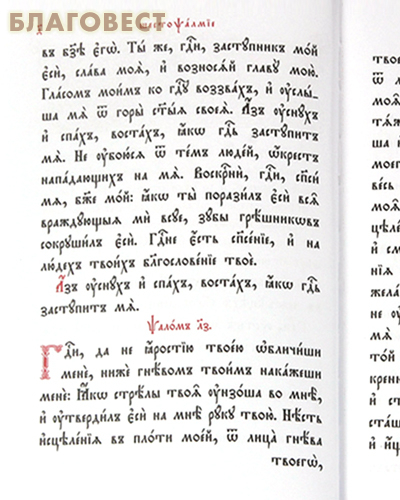 БЛАГОВЕСТ
шестоѱалмїе
въ бз҃ѣ є҆гѡ̀. Ты́ же, гдⷭ҇и, застꙋ́пникъ мо́й
є҆сѝ, сла́ва моѧ̀, и҆ вознося́й главꙋ̀ мою̀.
Гла́сомъ мои́мъ ко гдⷭ҇ꙋ воззва́хъ, и҆ ᲂу҆слы́-
ша мѧ̀ ѿ горы̀ ст҃ы́ѧ своеѧ̀. А҆́зъ ᲂу҆снꙋ́хъ
и҆ спа́хъ, воста́хъ, ꙗ҆́кѡ гдⷭ҇ь застꙋ́питъ
мѧ̀. Не ᲂу҆бою́сѧ ѿ те́мъ люде́й, ѡ҆́крестъ
напа́дающихъ на мѧ̀. Воскрⷭ҇нѝ, гдⷭ҇и, сп҃сѝ
мѧ̀, бж҃е мо́й: ꙗ҆́кѡ ты̀ порази́лъ є҆сѝ всѧ̑
враждꙋ́ющыѧ мѝ всꙋ́е, зꙋ́бы грѣ́шникѡвъ
сокрꙋши́лъ є҆сѝ. Гдⷭ҇не є҆́сть спⷭ҇нїе, и҆ на
лю́дехъ твои́хъ блгⷭ҇ове́нїе твоѐ.
А҆́зъ ᲂу҆снꙋ́хъ и҆ спа́хъ, воста́хъ, ꙗ҆́кѡ гдⷭ҇ь
застꙋ́питъ мѧ̀.
Ѱало́мъ л҃з.
Гдⷭ҇и, да не ꙗ҆́ростїю твое́ю ѡ҆бличи́ши
менѐ, нижѐ гнѣ́вомъ твои́мъ нака́жеши
менѐ: Ꙗ҆́кѡ стрѣ́лы твоѧ̑ ᲂу҆нзо́ша во мнѣ̀,
и҆ ᲂу҆тверди́лъ є҆сѝ на мнѣ̀ рꙋ́кꙋ твою̀. Нѣ́сть
и҆сцѣле́нїѧ въ пло́ти мое́й, ѿ лица̀ гнѣ́ва
твоегѡ̀,